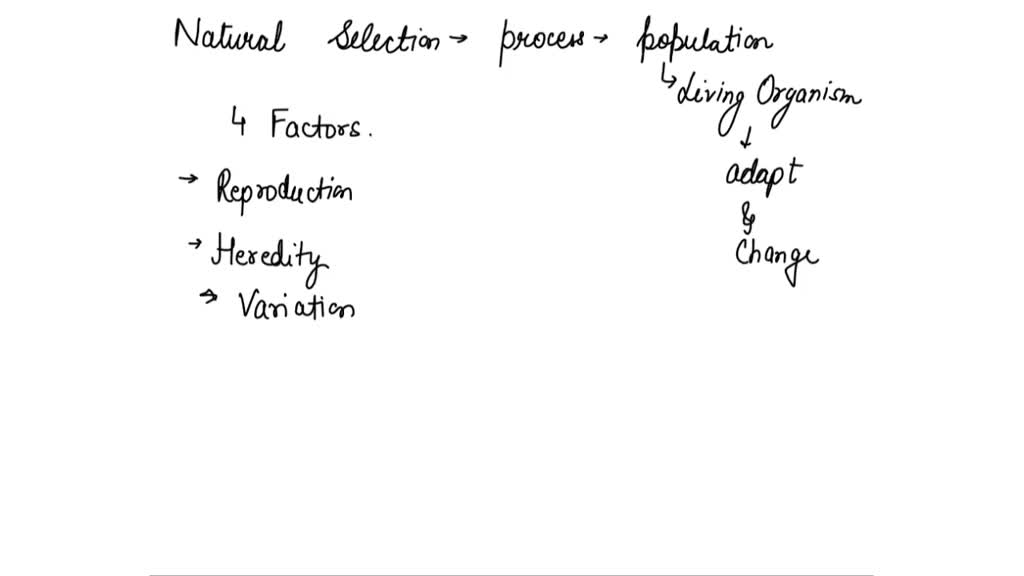 Natural Selection → process → population
↳ Living Organism
↓
4 Factors.
adapt
→ Reproduction
&
→ Heredity
Change
→ Variation